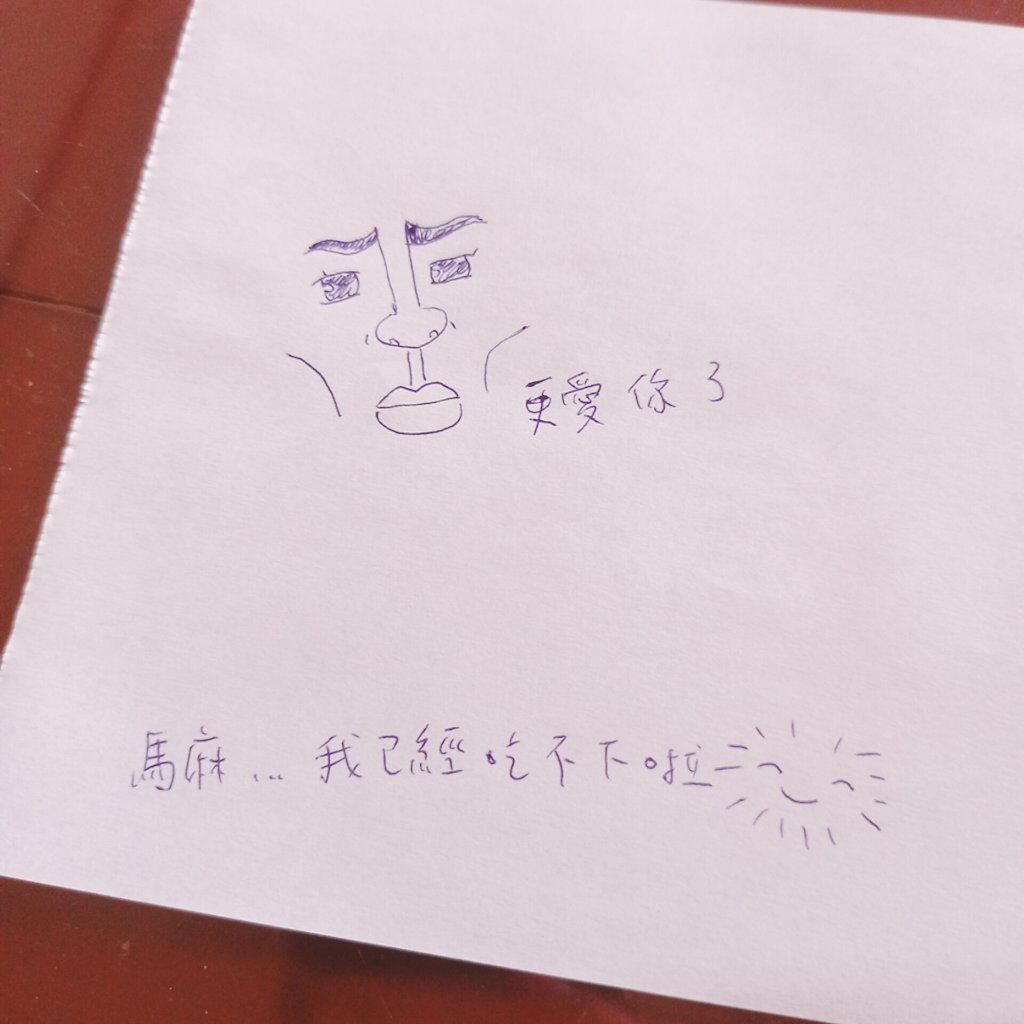 更愛你了
馬麻...我已經吃不下啦